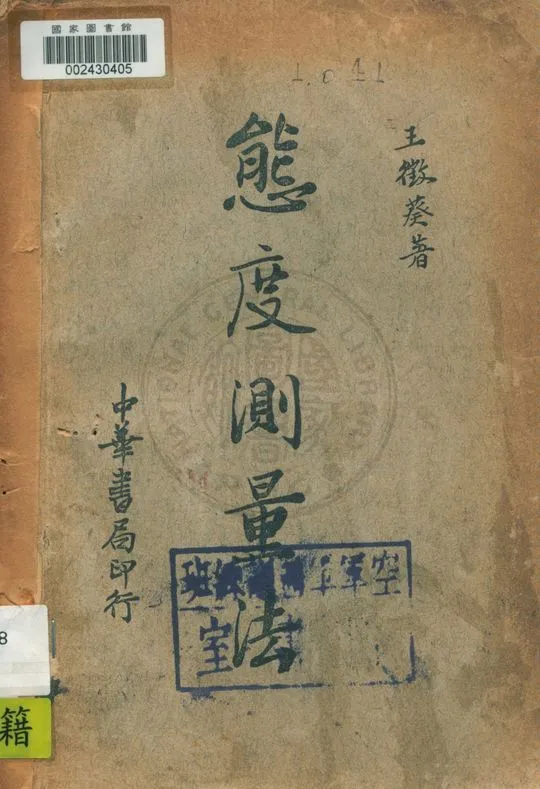 國家圖書館
002430405
1.041
王徵葵著
態度測量法
中華書局印行
NATIONAL CENTRAL LIBRARY
空軍
班
室
8
籍